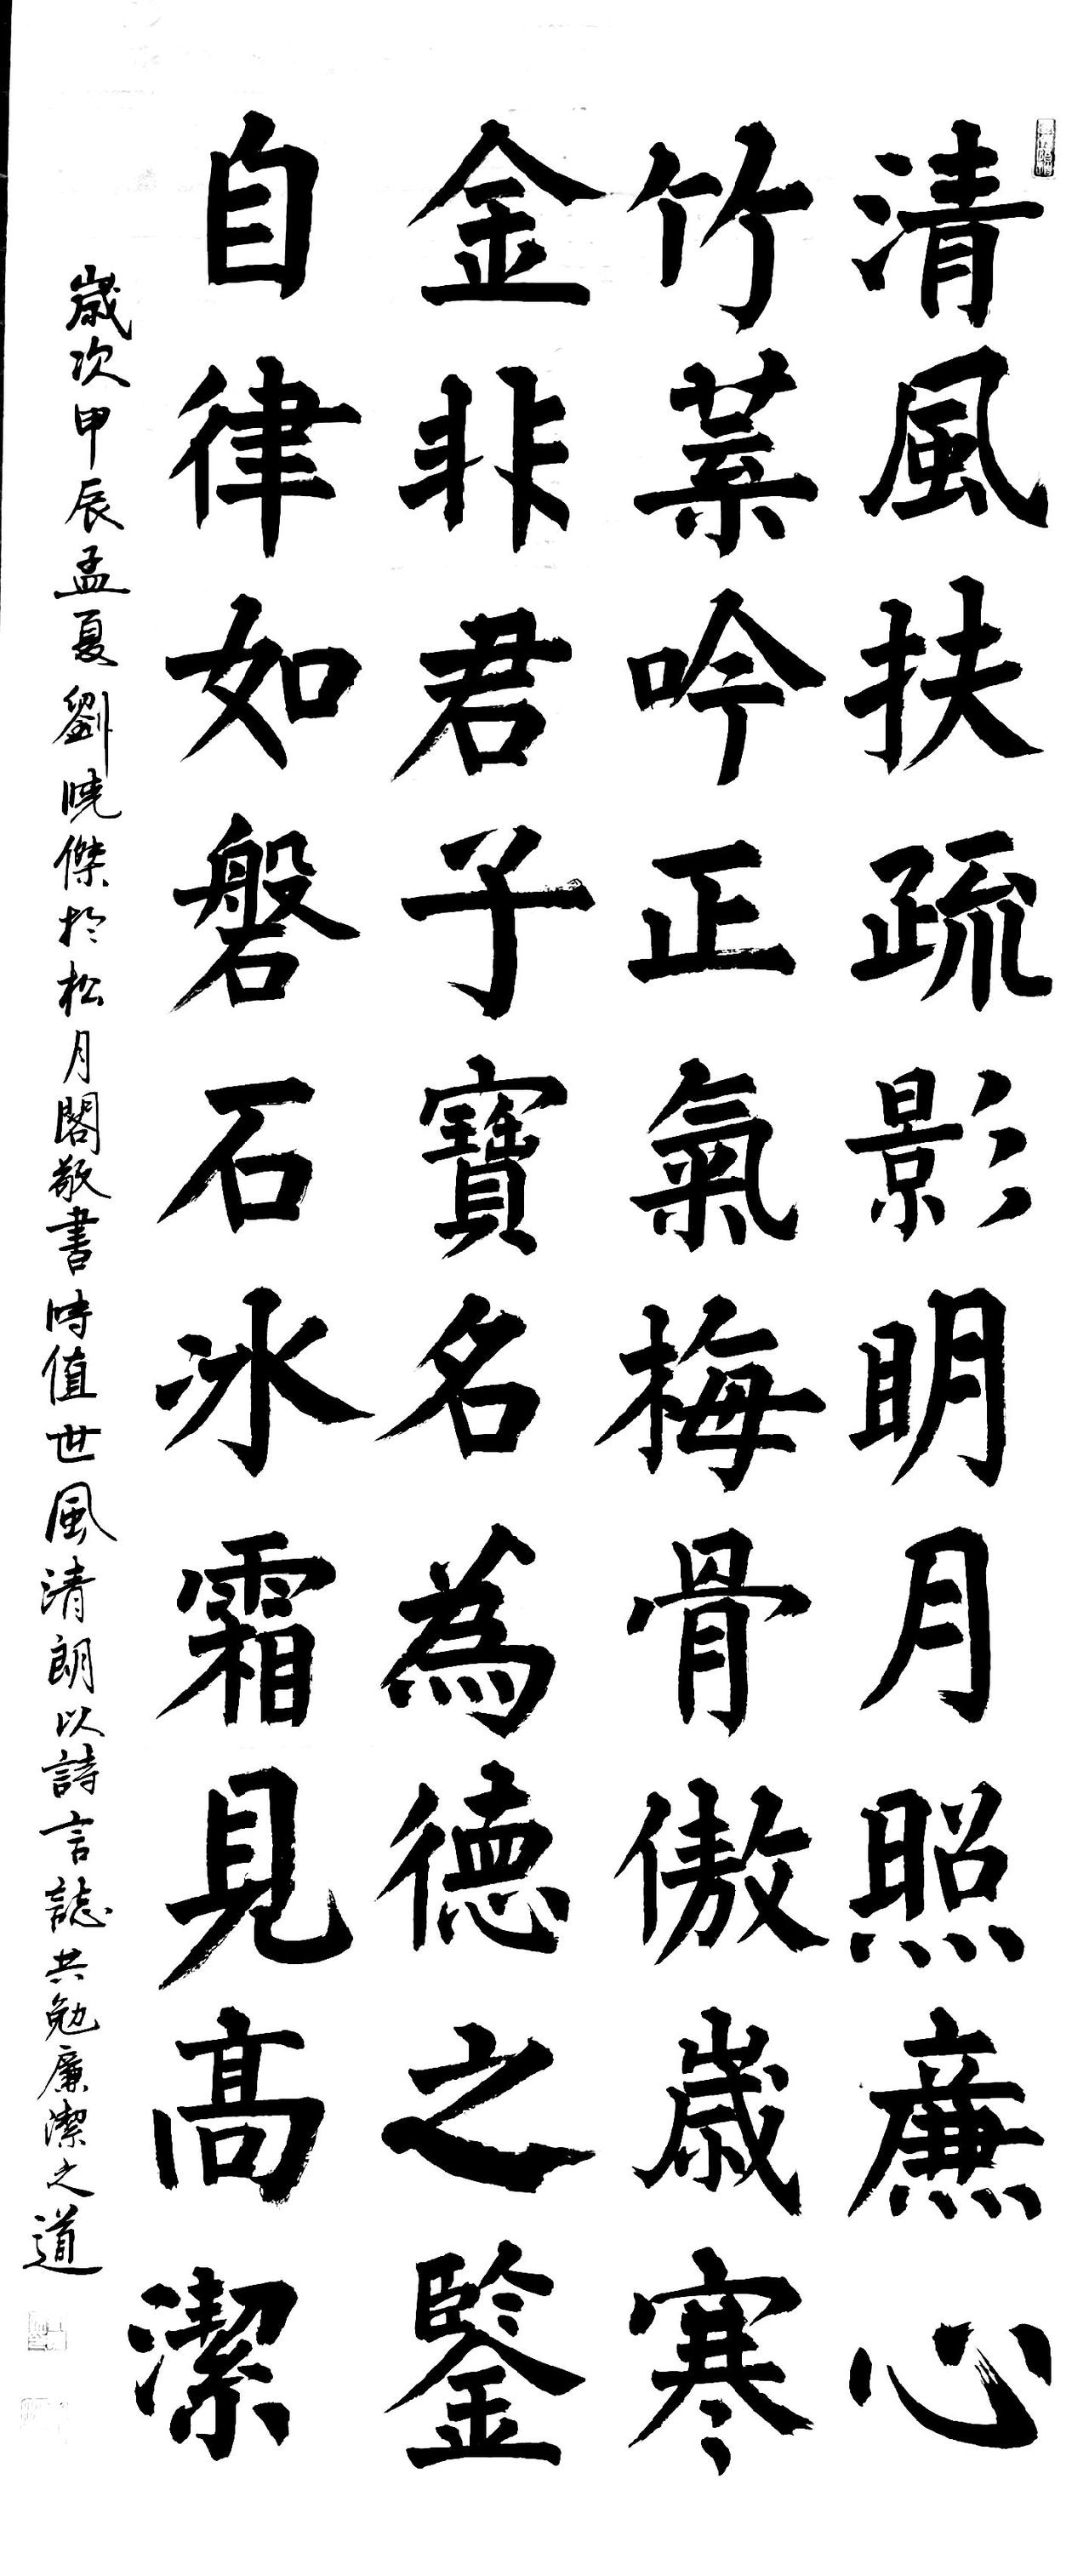 清風扶疏影明月照廉心
竹葉吟正氣梅骨傲歲寒
金非君子寶名為德之鋻
自律如磐石冰霜見高潔
歲次甲辰孟夏劉曉傑於松月閣敬書時值世風清朗以詩言誌共勉廉潔之道